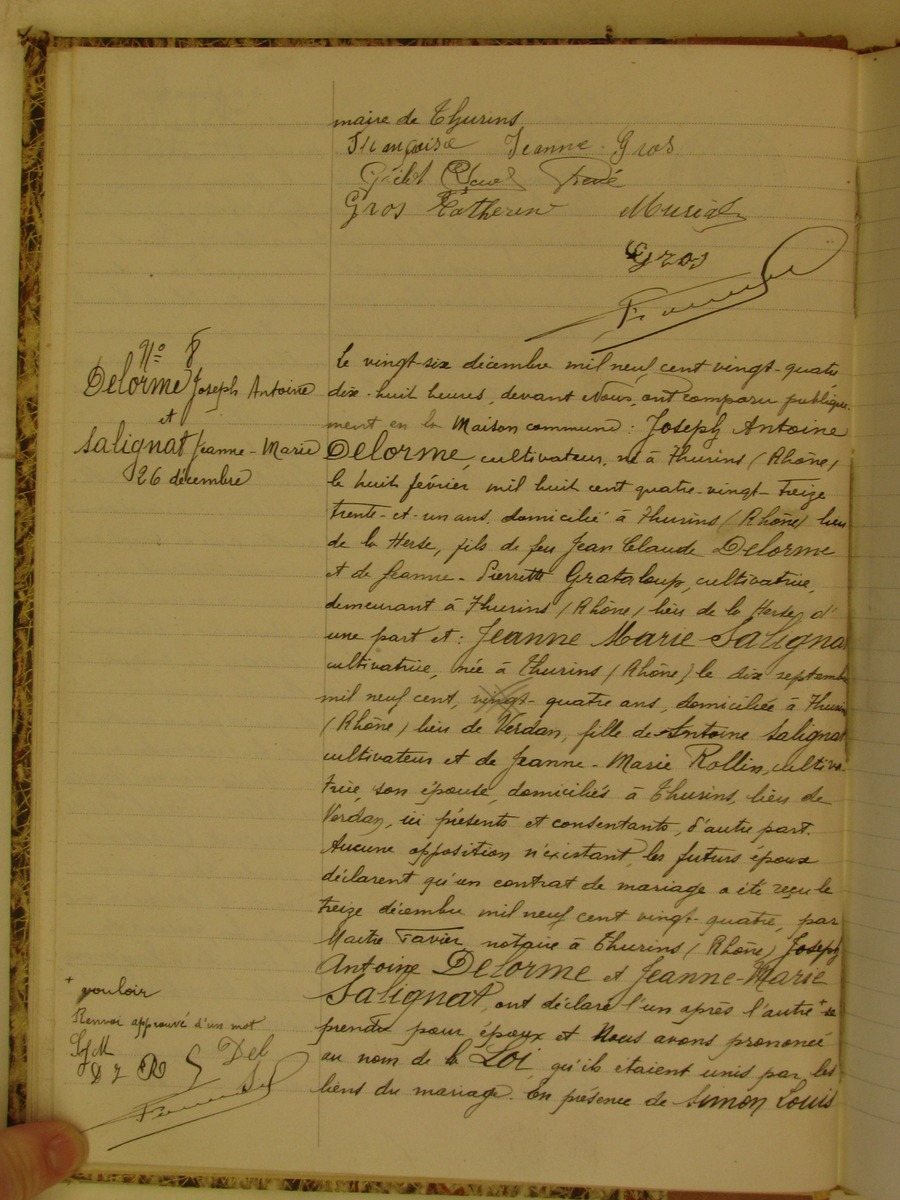 maire de Thurins
Françoise Jeanne Gros
René
Gros Catherine
Gros
N° 8
Delorme Joseph Antoine
et
Salignat Jeanne-Marie
26 décembre
Le vingt-six décembre mil neuf cent vingt-quatre
dix-huit heures, devant Nous, ont comparu publique-
ment en la Maison commune : Joseph Antoine
Delorme, cultivateur, né à Thurins (Rhône)
le huit février mil huit cent quatre-vingt-treize
trente-et-un ans, domicilié à Thurins (Rhône) lieu
de la Herse, fils de feu Jean Claude Delorme
et de Jeanne-Pierrette Grataloup, cultivatrice,
demeurant à Thurins (Rhône) lieu de la Herse, d'
une part et : Jeanne Marie Salignat
cultivatrice, née à Thurins (Rhône) le dix septembre
mil neuf cent, vingt-quatre ans, domiciliée à Thurins
(Rhône) lieu de Verdan, fille de Antoine Salignat
cultivateur et de Jeanne-Marie Rollin, cultiva-
trice, son épouse, domiciliés à Thurins, lieu de
Verdan, ici présents et consentants, d'autre part.
Aucune opposition n'existant, les futurs époux
déclarent qu'un contrat de mariage a été reçu le
treize décembre mil neuf cent vingt-quatre, par
Maitre Favier, notaire à Thurins (Rhône) Joseph
Antoine Delorme et Jeanne-Marie
Salignat, ont déclaré l'un après l'autre + se
prendre pour époux et Nous avons prononcé
au nom de la Loi, qu'ils étaient unis par les
liens du mariage. En présence de Simon Louis
+ vouloir
Renvoi approuvé d'un mot
SJM